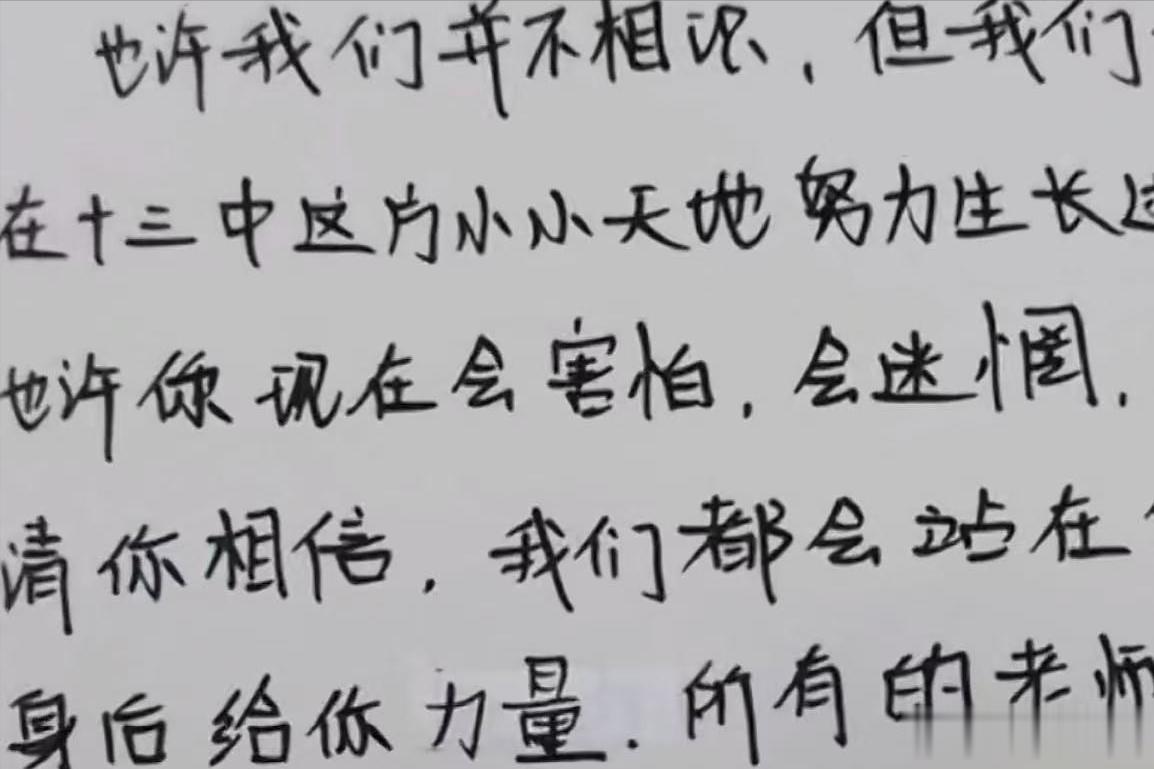 也许我们并不相识，但我们
在十三中这片小小天地努力生长过
也许你现在会害怕，会迷惘，
请你相信，我们都会站在
身后给你力量．所有的老师